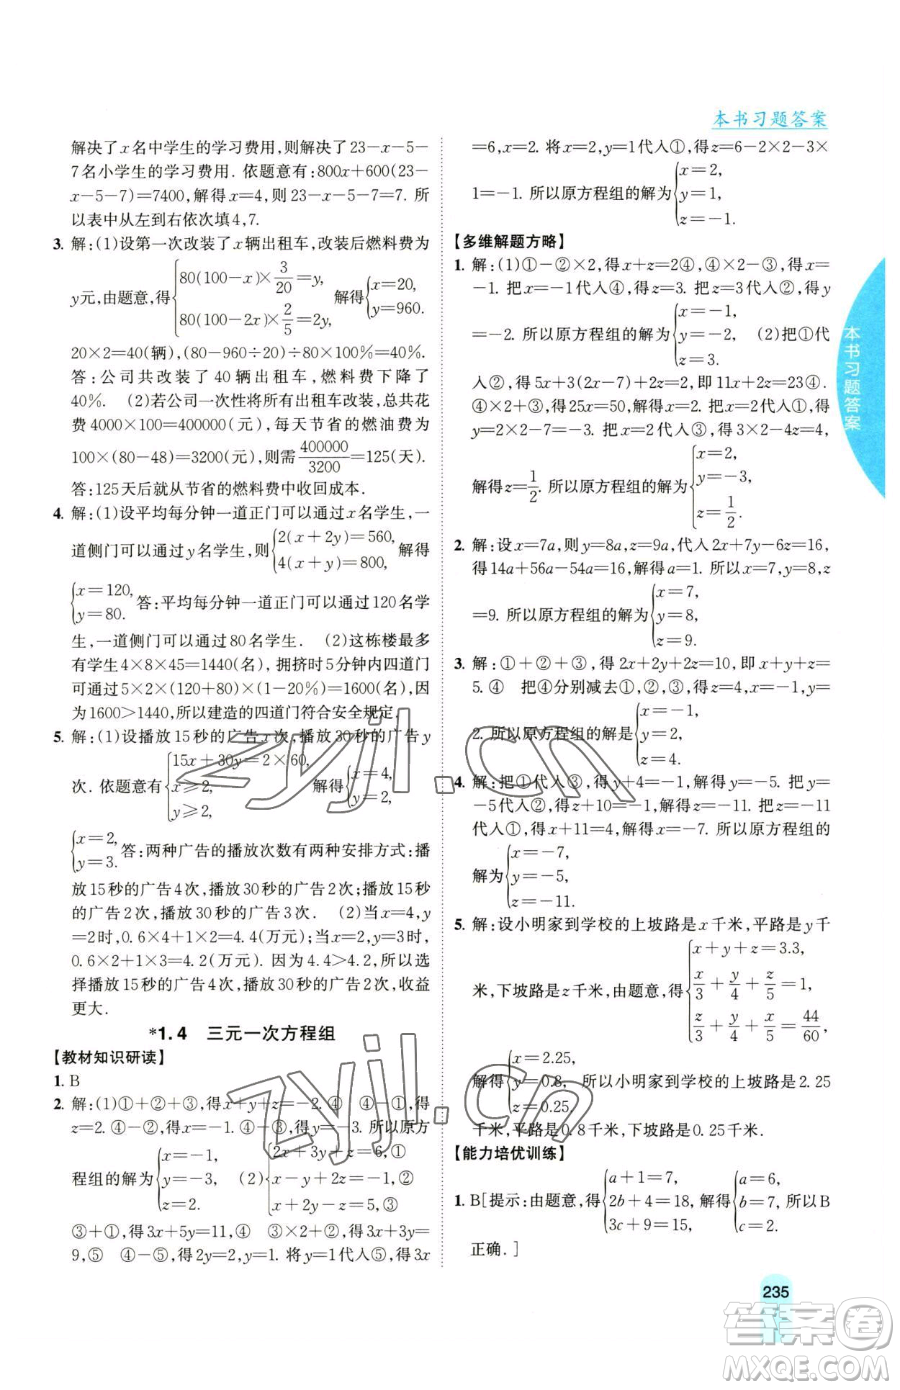 本书习题答案
解决了x名中学生的学习费用,则解决了23-x-5-
7名小学生的学习费用. 依题意有:800x+600(23-
x-5-7)=7400,解得x=4,则23-x-5-7=7. 所
以表中从左到右依次填4,7.
3. 解:(1)设第一次改装了x辆出租车,改装后燃料费为
y元,由题意,得{80(100-x)×3/20=y, 80(100-2x)×2/5=2y, 解得{x=20, y=960.
20×2=40(辆),(80-960÷20)÷80×100%=40%.
答:公司共改装了40辆出租车,燃料费下降了
40%. (2)若公司一次性将所有出租车改装,总共花
费4000×100=400000(元),每天节省的燃油费为
100×(80-48)=3200(元),则需400000/3200=125(天).
答:125天后就从节省的燃料费中收回成本.
4. 解:(1)设平均每分钟一道正门可以通过x名学生,一
道侧门可以通过y名学生,则{2(x+2y)=560, 4(x+y)=800, 解得
{x=120, y=80. 答:平均每分钟一道正门可以通过120名学
生,一道侧门可以通过80名学生. (2)这栋楼最多
有学生4×8×45=1440(名),拥挤时5分钟内四道门
可通过5×2×(120+80)×(1-20%)=1600(名),因
为1600>1440,所以建造的四道门符合安全规定.
5. 解:(1)设播放15秒的广告x次,播放30秒的广告y
次. 依题意有{15x+30y=2×60, x≥2, y≥2, 解得{x=4, y=2,
{x=2, y=3. 答:两种广告的播放次数有两种安排方式:播
放15秒的广告4次,播放30秒的广告2次;或播放
15秒的广告2次,播放30秒的广告3次. (2)当x=4,y
=2时,0.6×4+1×2=4.4(万元);当x=2,y=3时,
0.6×2+1×3=4.2(万元). 因为4.4>4.2,所以选
择播放15秒的广告4次,播放30秒的广告2次,收益
更大.
*1.4 三元一次方程组
【教材知识研读】
1. B
2. 解:(1)①+②+③,得x+y+z=-2. ④ ④-①,得
z=2. ④-②,得x=-1. ④-③,得y=-3. 所以原方
程组的解为{x=-1, y=-3, z=2. (2){2x+3y+z=6,① x-y+2z=-1,② x+2y-z=5,③
③+①,得3x+5y=11,④ ③×2+②,得3x+3y=
9,⑤ ④-⑤得2y=2,y=1. 将y=1代入⑤,得3x
=6,x=2. 将x=2,y=1代入①,得z=6-2×2-3×
1=-1. 所以原方程组的解为{x=2, y=1, z=-1.
【多维解题方略】
1. 解:(1)①-②×2,得x+z=2④,④×2-③,得x=
-1. 把x=-1代入④,得z=3. 把z=3代入②,得y=
-2. 所以原方程组的解为{x=-1, y=-2, z=3. (2)把①代
入②,得5x+3(2x-7)+2z=2,即11x+2z=23. ④
④×2+③,得25x=50,解得x=2. 把x=2代入①,得
y=2×2-7=-3. 把x=2代入③,得3×2-4z=4,
解得z=1/2. 所以原方程组的解为{x=2, y=-3, z=1/2.
2. 解:设x=7a,则y=8a,z=9a,代入2x+7y-6z=16,
得14a+56a-54a=16,解得a=1,所以x=7,y=8,z
=9. 所以原方程组的解为{x=7, y=8, z=9.
3. 解:①+②+③,得2x+2y+2z=10,即x+y+z=
5. ④ 把④分别减去①②③,得z=4,x=-1,y=
2. 所以原方程组的解为{x=-1, y=2, z=4.
4. 解:把①代入③,得y+4=-1,解得y=-5. 把y=
-5代入②,得z+10=-1,解得z=-11. 把z=-11
代入①,得x+11=4,解得x=-7. 所以原方程组的
解为{x=-7, y=-5, z=-11.
5. 解:设小明家到学校的上坡路是x千米,平路是y千
米,下坡路是z千米. 由题意,得{x+y+z=3.3, x/3+y/4+z/5=1, z/3+y/4+x/5=44/60,
解得{x=2.25, y=0.8, z=0.25. 所以小明家到学校的上坡路是2.25
千米,平路是0.8千米,下坡路是0.25千米.
【能力培优训练】
1. B[提示:由题意,得{a+1=7, 2b+4=18, 3c+9=15, 解得{a=6, b=7, c=2. 所以B
正确.]
本书习题答案
235
zyjl.cn
zyjl.cn
答案圈
MXQE.COM